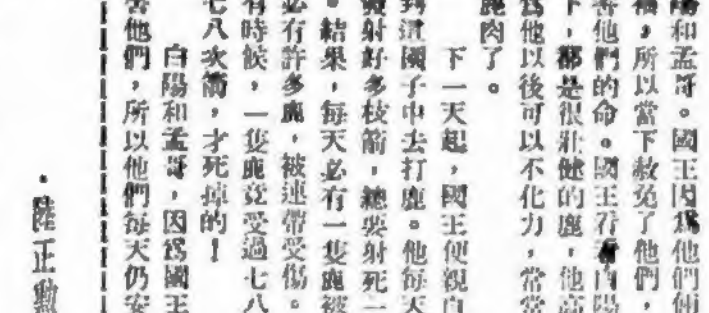 陽和孟哥。國王因爲他們倆
禍，所以當下赦免了他們，
害他們的命。國王看看白陽
下，都是很壯健的鹿，他高
爲他以後可以不化力，常常
鹿肉了。
下一天起，國王便親自
到這園子中去打鹿。他每天
射好多枝箭，總要射死一
。結果，每天必有一隻鹿被
必有許多鹿，被連帶受傷。
有時候，一隻鹿竟受過七八
七八次箭，才死掉的！
白陽和孟哥，因爲國王
害他們，所以他們每天仍安
·陸正勳